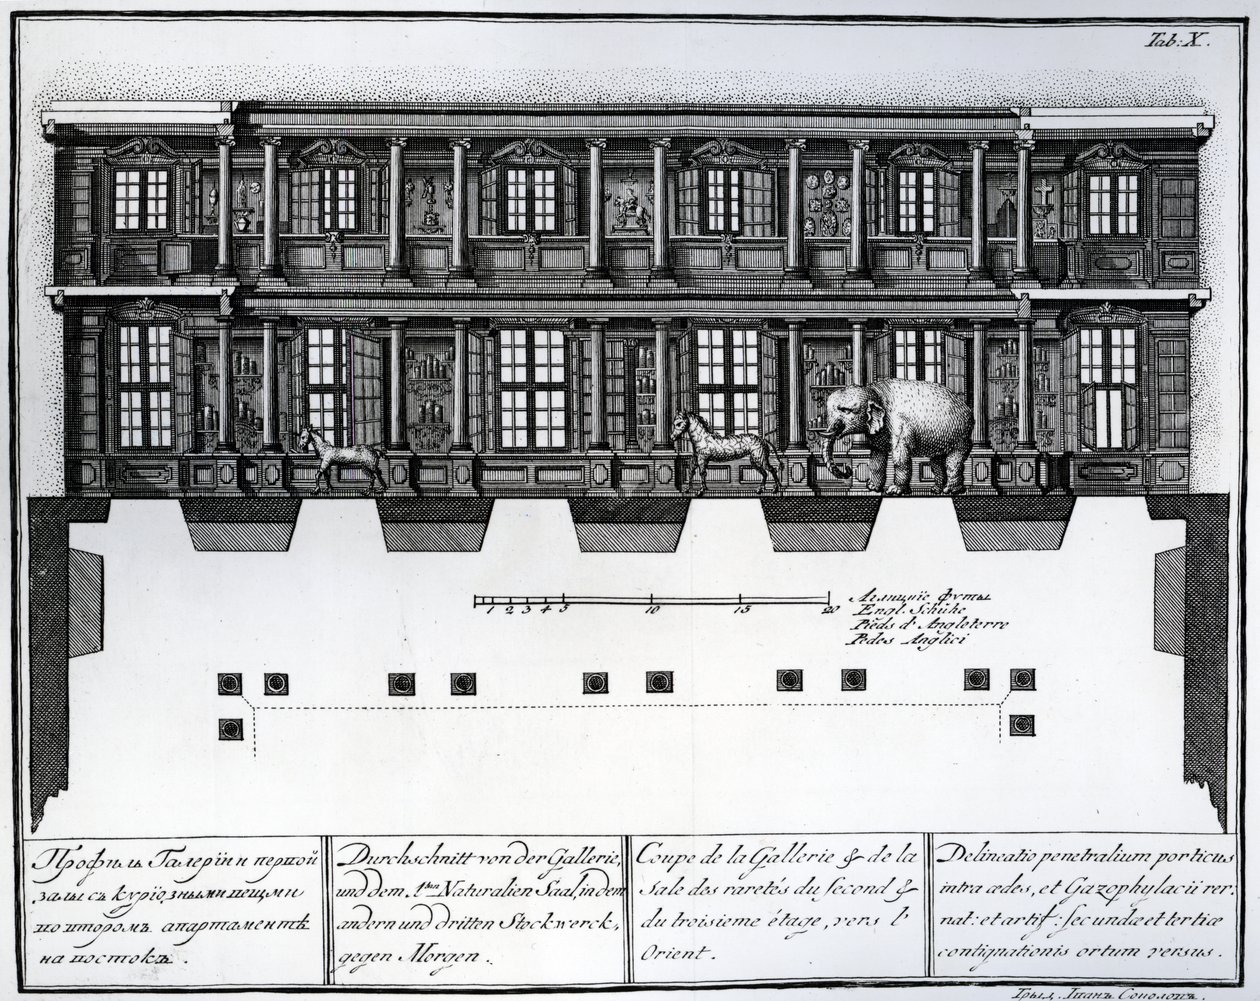 Tab: X.
1 2 3 4 5 10 15 20
Аглицкїе футы
Engl. Schuhe
Pieds d'Angleterre
Pedes Anglici
Профиль Галерїи и первой
залы съ курїозными вещми
во второмъ апартаментѣ
на востокъ.
Durchschnitt von der Gallerie,
und dem 1ten Naturalien Saal, in dem
andern und dritten Stockwerck,
gegen Morgen.
Coupe de la Gallerie & de la
Sale des raretés du second &
du troisieme étage, vers l'
Orient.
Delineatio penetralium porticus
intra ædes, et Gazophylacii rer:
nat: et artif: secundæ et tertiæ
contignationis ortum versus.
Грыд. Іванъ Соколовъ.